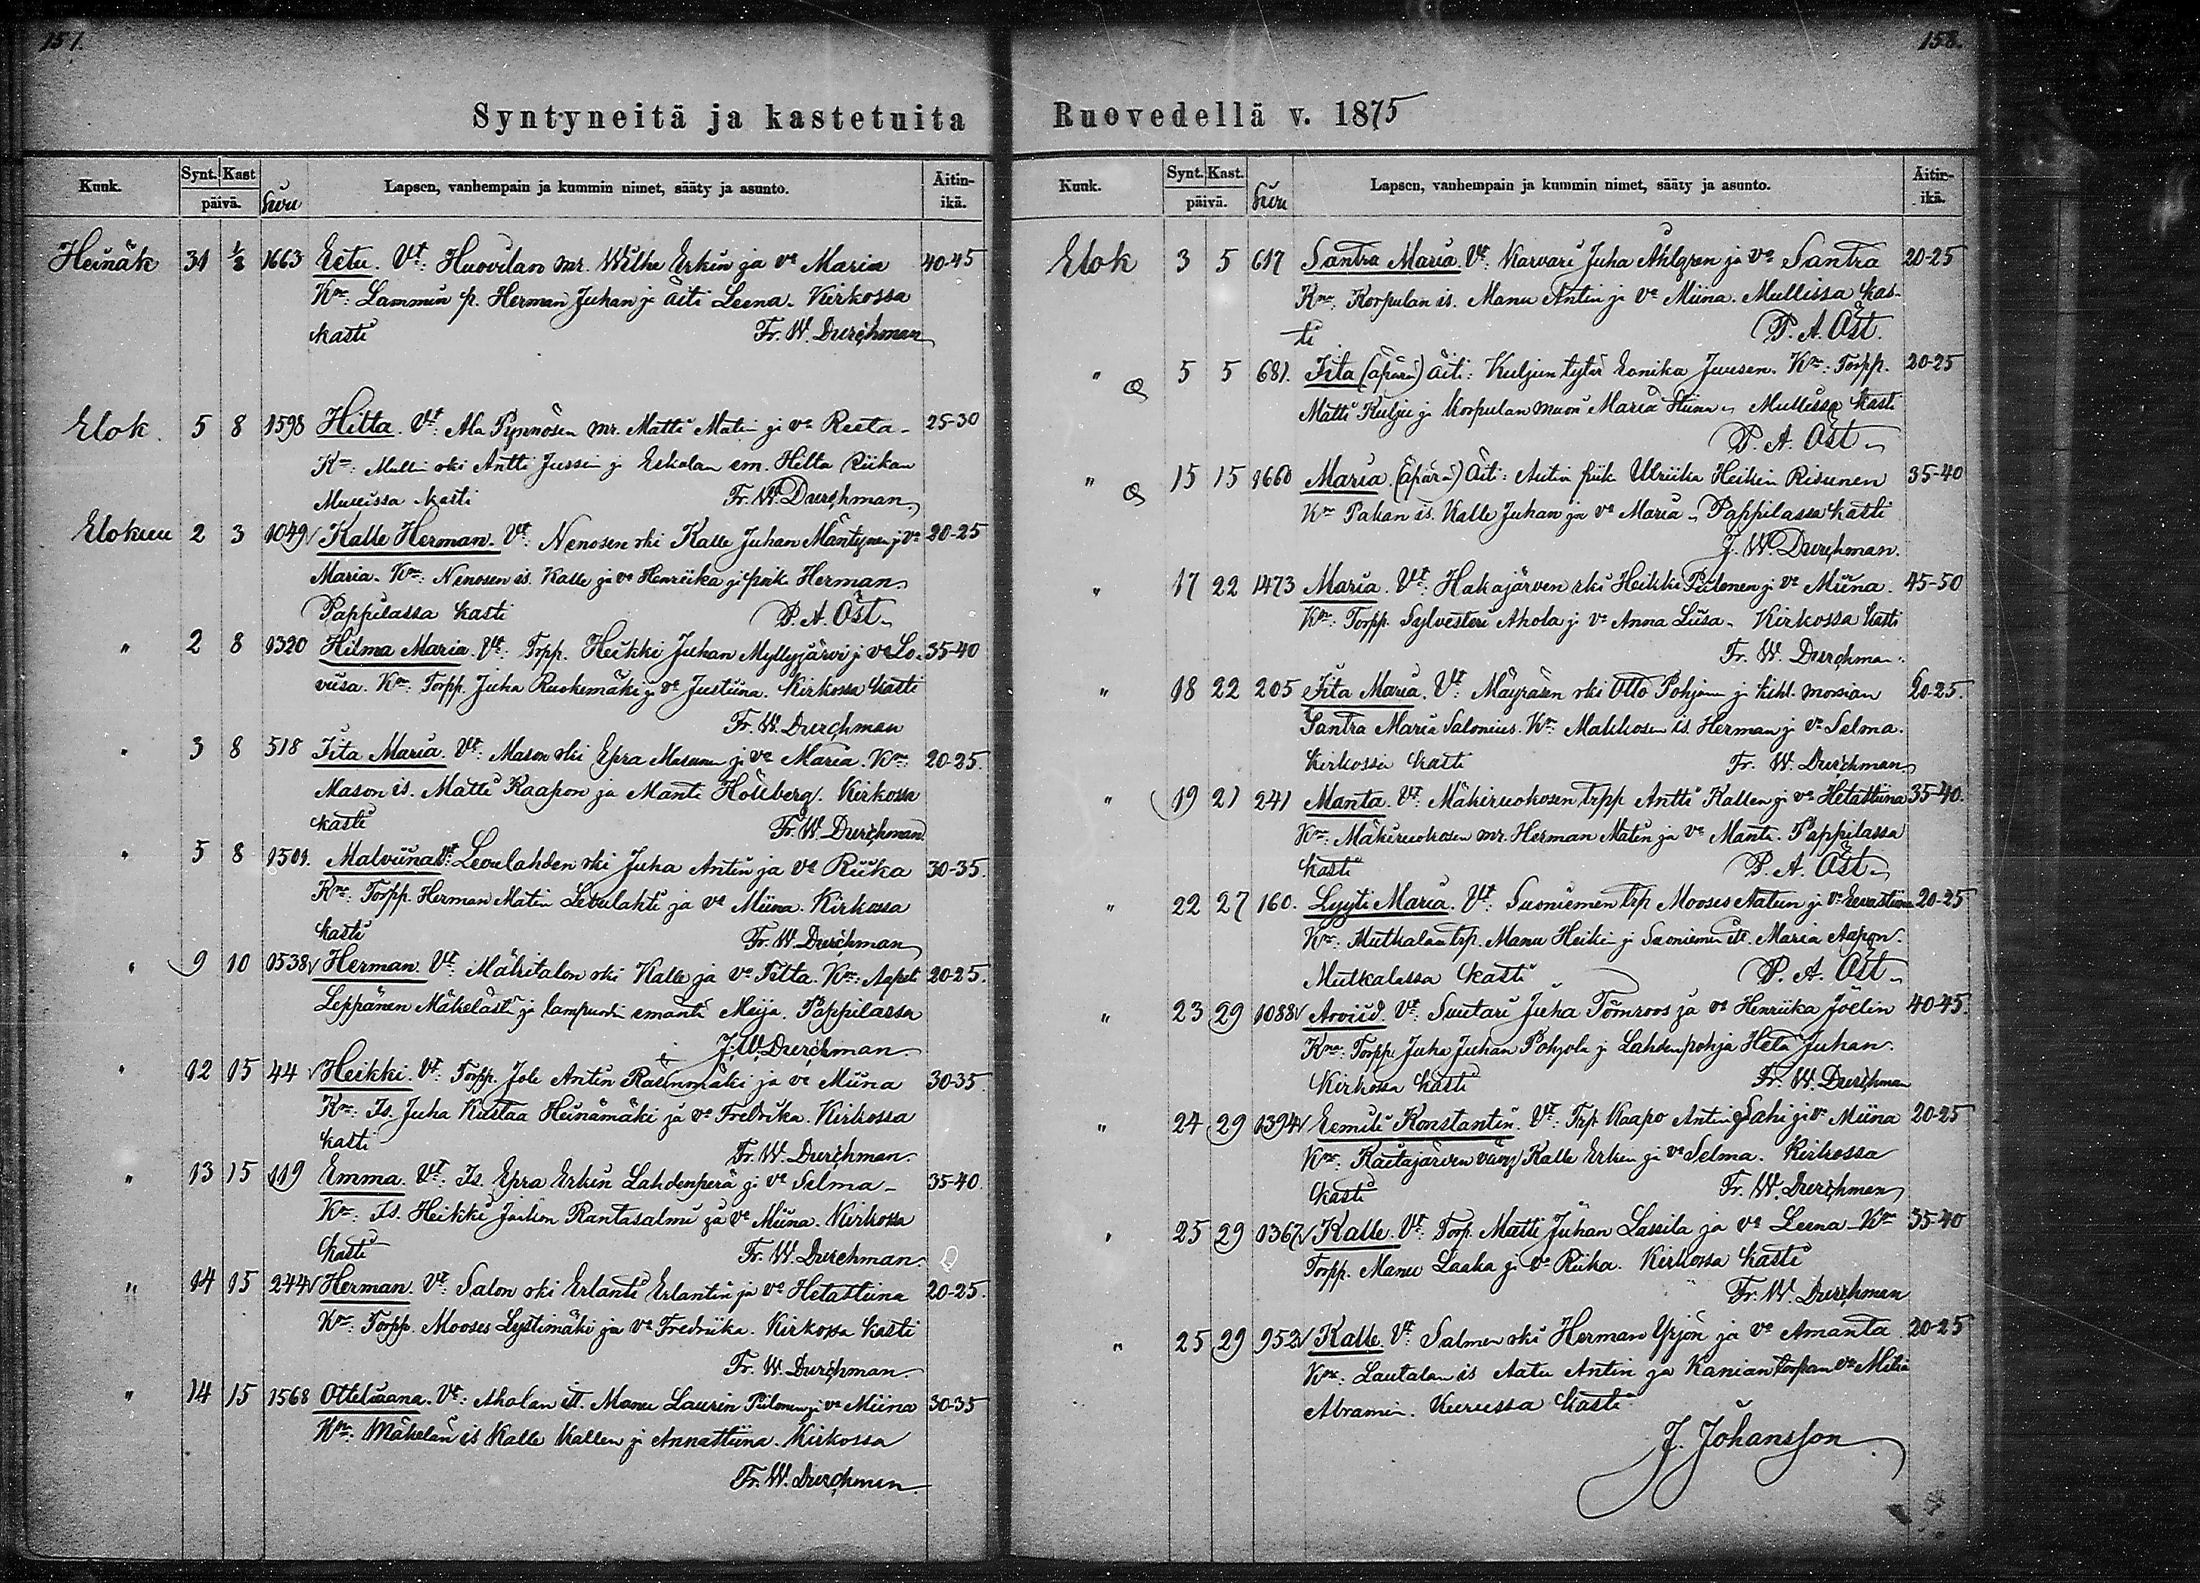 157.
158.
Syntyneitä ja kastetuita
Kuuk. Synt. Kast päivä. Suru Lapsen, vanhempain ja kummin nimet, sääty ja asunto. Äitin-ikä.
Heinäk 31 1/8 1663 Eetu. Vt: Huovilan mr. Wilhe Erkin ja va Maria 40-45
Km: Lammin p. Herman Juhan ja äiti Leena. Kirkossa
kasti Fr. W. Durchman
Elok. 5 8 1598 Hilta. Vt. Ala Pynnösen mr. Matti Matin ja va Reeta 25-30
Km: Mullin rki Antti Jussin ja Eskolan em. Hilta Riikan
Mullissa kasti Fr. W. Durchman
Elokuu 2 3 1049 Kalle Herman. Vt: Nenosen rki Kalle Juhan Mäntynen ja va 20-25
Maria. Km: Nenosen is. Kalle ja va Henriika ja poik. Herman
Pappilassa kasti P. A. Öst
" 2 8 1320 Hilma Maria. Vt: Trpp. Heikki Juhan Myllyjärvi ja va Lo- 35-40
viisa. Km: Torpp. Juha Ruokemäki ja va Justiina. Kirkossa kasti
Fr. W. Durchman
" 3 8 518 Iita Maria. Vt: Mason rki Epra Masunen ja va Maria. Km: 20-25.
Mason is. Matti Kaapon ja Manta Höllberg. Kirkossa
kasti Fr. W. Durchman
" 5 8 1501. Malviina Vt: Levulahden rki Juha Antin ja va Riika 30-35.
Km: Torpp. Herman Matin Levulahti ja va Miina. Kirkossa
kasti Fr. W. Durchman
" 9 10 1538 Herman. Vt: Mälritalon rki Kalle ja va Titta. Km: Aapeti 20-25.
Leppänen Mäkelästä ja emäntä Meija. Pappilassa
J. W. Durchman.
" 12 15 44 Heikki. Vt: Torpp. Jole Antin Räsinmäki ja va Miina 30-35
Km: Is. Juha Kustaa Heinämäki ja va Fredrika. Kirkossa
kasti Fr. W. Durchman.
" 13 15 119 Emma. Vt: Is. Epra Erkin Lahdenperä ja va Selma 35-40.
Km: Is. Heikki Jaakon Rantasalmi ja va Miina. Kirkossa
kasti Fr. W. Durchman.
" 14 15 244 Herman. Vt: Salon rki Erlanti Erlantin ja va Hetastiina 20-25.
Km: Torpp. Mooses Lystimäki ja va Fredriika. Kirkossa kasti
Fr. W. Durchman.
" 14 15 1568 Otteliaana. Vt: Aholan itl. Manu Laurin Piilonen ja va Miina 30-35
Km: Mäkelän is Kalle Kallen ja Annastiina. Kirkossa
Fr. W. Durchman.
Ruovedellä v. 1875
Kuuk. Synt. Kast. päivä. Suru Lapsen, vanhempain ja kummin nimet, sääty ja asunto. Äitin-ikä.
Elok 3 5 617 Santra Maria. Vt: Karvari Juha Ahlgren ja va Santra 20-25
Km: Korpulan is. Manu Antin ja va Miina. Mullissa kas-
ti P. A. Öst.
" 5 5 681. Iita (äpärä) Äiti: Kuljun tytär Eonika Juusen. Km: Torpp. 20-25
Matti Kulju ja Korpulan muori Maria Stiina. Mullissa kasti
P. A. Öst
" 15 15 1660 Maria. (äpärä) Äiti: Autin piik Ulriika Heikin Risunen 35-40
Km Pakan is. Kalle Juhan ja va Maria. Pappilassa kasti
J. W. Durchman.
" 17 22 1473 Maria. Vt: Hakajärven rki Heikki Piilonen ja va Miina. 45-50
Km: Torpp. Sylvesteri Ahola ja va Anna Liisa. Kirkossa kasti
Fr. W. Durchman.
" 18 22 205 Iita Maria. Vt: Mäyräsen rki Otto Pohjonen ja kihl. morsian 20-25.
Santra Maria Salonius. Km: Makkosen is. Herman ja va Selma.
Kirkossa kasti Fr. W. Durchman
" 19 21 241 Manta. Vt: Mäkiruokosen trpp Antti Kallen ja va Hetastiina 35-40.
Km: Mäkiruokosen mr. Herman Matin ja va Manta. Pappilassa
kasti P. A. Öst
" 22 27 160. Lyyti Maria. Vt: Suoniemen trp Mooses Aatun ja va Eevastiina 20-25
Km: Mutkalan trp. Manu Heikin ja Suoniemen itl. Maria Aapon.
Mutkalassa kasti P. A. Öst
" 23 29 1088 Arviid. Vt: Suutari Juha Törnroos ja va Henriika Joelin 40-45.
Km: Torpp. Juha Juhan Pohjola ja Lahdenpohja Heta Juhan.
Kirkossa kasti Fr. W. Durchman
" 24 29 1394 Eemili Konstantin. Vt: Trp. Kaapo Antin Sahi ja va Miina 20-25
Km: Raitajärven Kalle Erken ja va Selma. Kirkossa
kasti Fr. W. Durchman
" 25 29 1367 Kalle. Vt: Torp. Matti Juhan Lassila ja va Leena. Km 35-40
Torpp. Manu Laaka ja va Riika. Kirkossa kasti
Fr. W. Durchman
" 25 29 952 Kalle. Vt: Salmen rki Herman Yrjön ja va Amanta. 20-25
Km: Lautalan is Aatu Antin ja Kanian torpan va Miina
Abramin. Kurussa kasti
J. Johansson